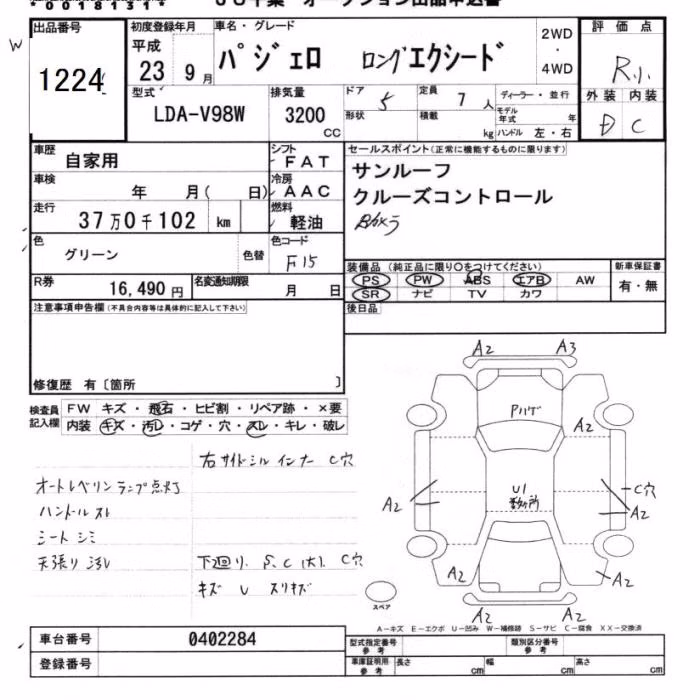 00181314
JU千葉 オークション出品申込書
W
出品番号 1224
初度登録年月 平成 23 9月
車名・グレード パジェロ ロングエクシード
2WD ・ 4WD
評価点 R.
型式 LDA-V98W
排気量 3200 CC
ドア 5 定員 7人
ディーラー・並行
形状 積載 kg
モデル年式 年
ハンドル 左・右
外装 D 内装 C
車歴 自家用
シフト FAT
セールスポイント(正常に機能するものに限ります)
サンルーフ
車検 年 月( 日)
冷房 AAC
クルーズコントロール
走行 37万0千102 km
燃料 軽油
Bカメラ
色 グリーン 色替
色コード F15
装備品 (純正品に限り○をつけてください)
新車保証書
PS PW ABS エアB AW
有・無
SR ナビ TV カワ
R券 16,490円
名変通知期限 月 日
後日品
注意事項申告欄(不具合内容等は具体的に記入して下さい)
修復歴 有〔箇所 〕
検査員記入欄
FW キズ・飛石・ヒビ割・リペア跡・×要
内装 キズ・汚レ・コゲ・穴・スレ・キレ・破レ
右サイドシルインナー C穴
オートレベリングランプ点灯
ハンドルスレ
シートシミ
天張り汚レ
下廻り、S、C(大)、C穴
キズ U スリキズ
A2 A3
Pハゲ
A2
U1 数ヶ所
C穴
A2
A2 A2
A2 A2
スペア
A-キズ E-エクボ U-凹み W-補修跡 S-サビ C-腐食 XX-交換済
車台番号 0402284
登録番号
型式指定番号 参考
類別区分番号 参考
車庫証明用 参考 長さ cm 幅 cm 高さ cm